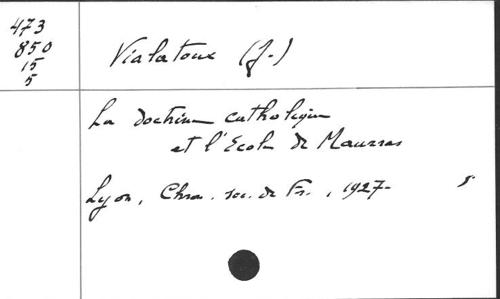 473
850
15
5
Vialatoux (J.)
La doctrine catholique
et l'Ecole de Maurras
Lyon, Chro. soc. de Fr., 1927-
5